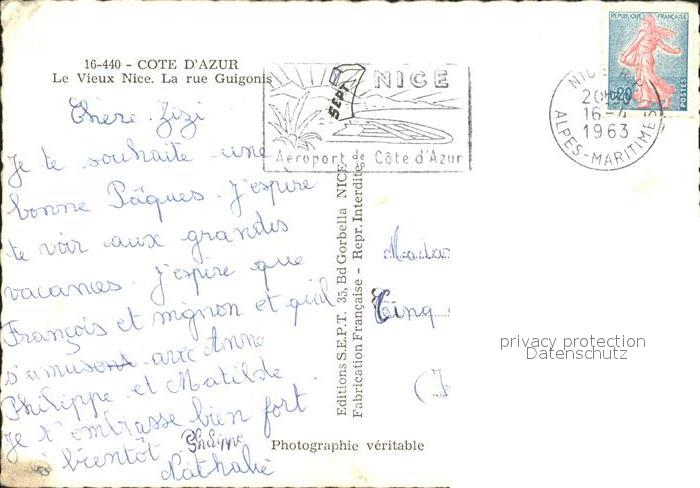 16-440 - COTE D'AZUR
Le Vieux Nice. La rue Guigonis
Chère Zizi
Je te souhaite une
bonne Pâques. J'espère
te voir aux grandes
vacances. J'espire que
François et mignon et quil
s'amusent avec Anne
Philippe et Matilde
Je t'embrasse bien fort
à bientôt Philippe
Nathalie
SEPT
NICE
Aéroport de Côte d'Azur
REPUBLIQUE FRANÇAISE
0,20
POSTES
NICE
16-4
1963
ALPES-MARITIMES
Editions S.E.P.T. 35, Bd Gorbella NICE
Fabrication Française - Repr. Interdite
Madam
privacy protection
Datenschutz
Photographie véritable